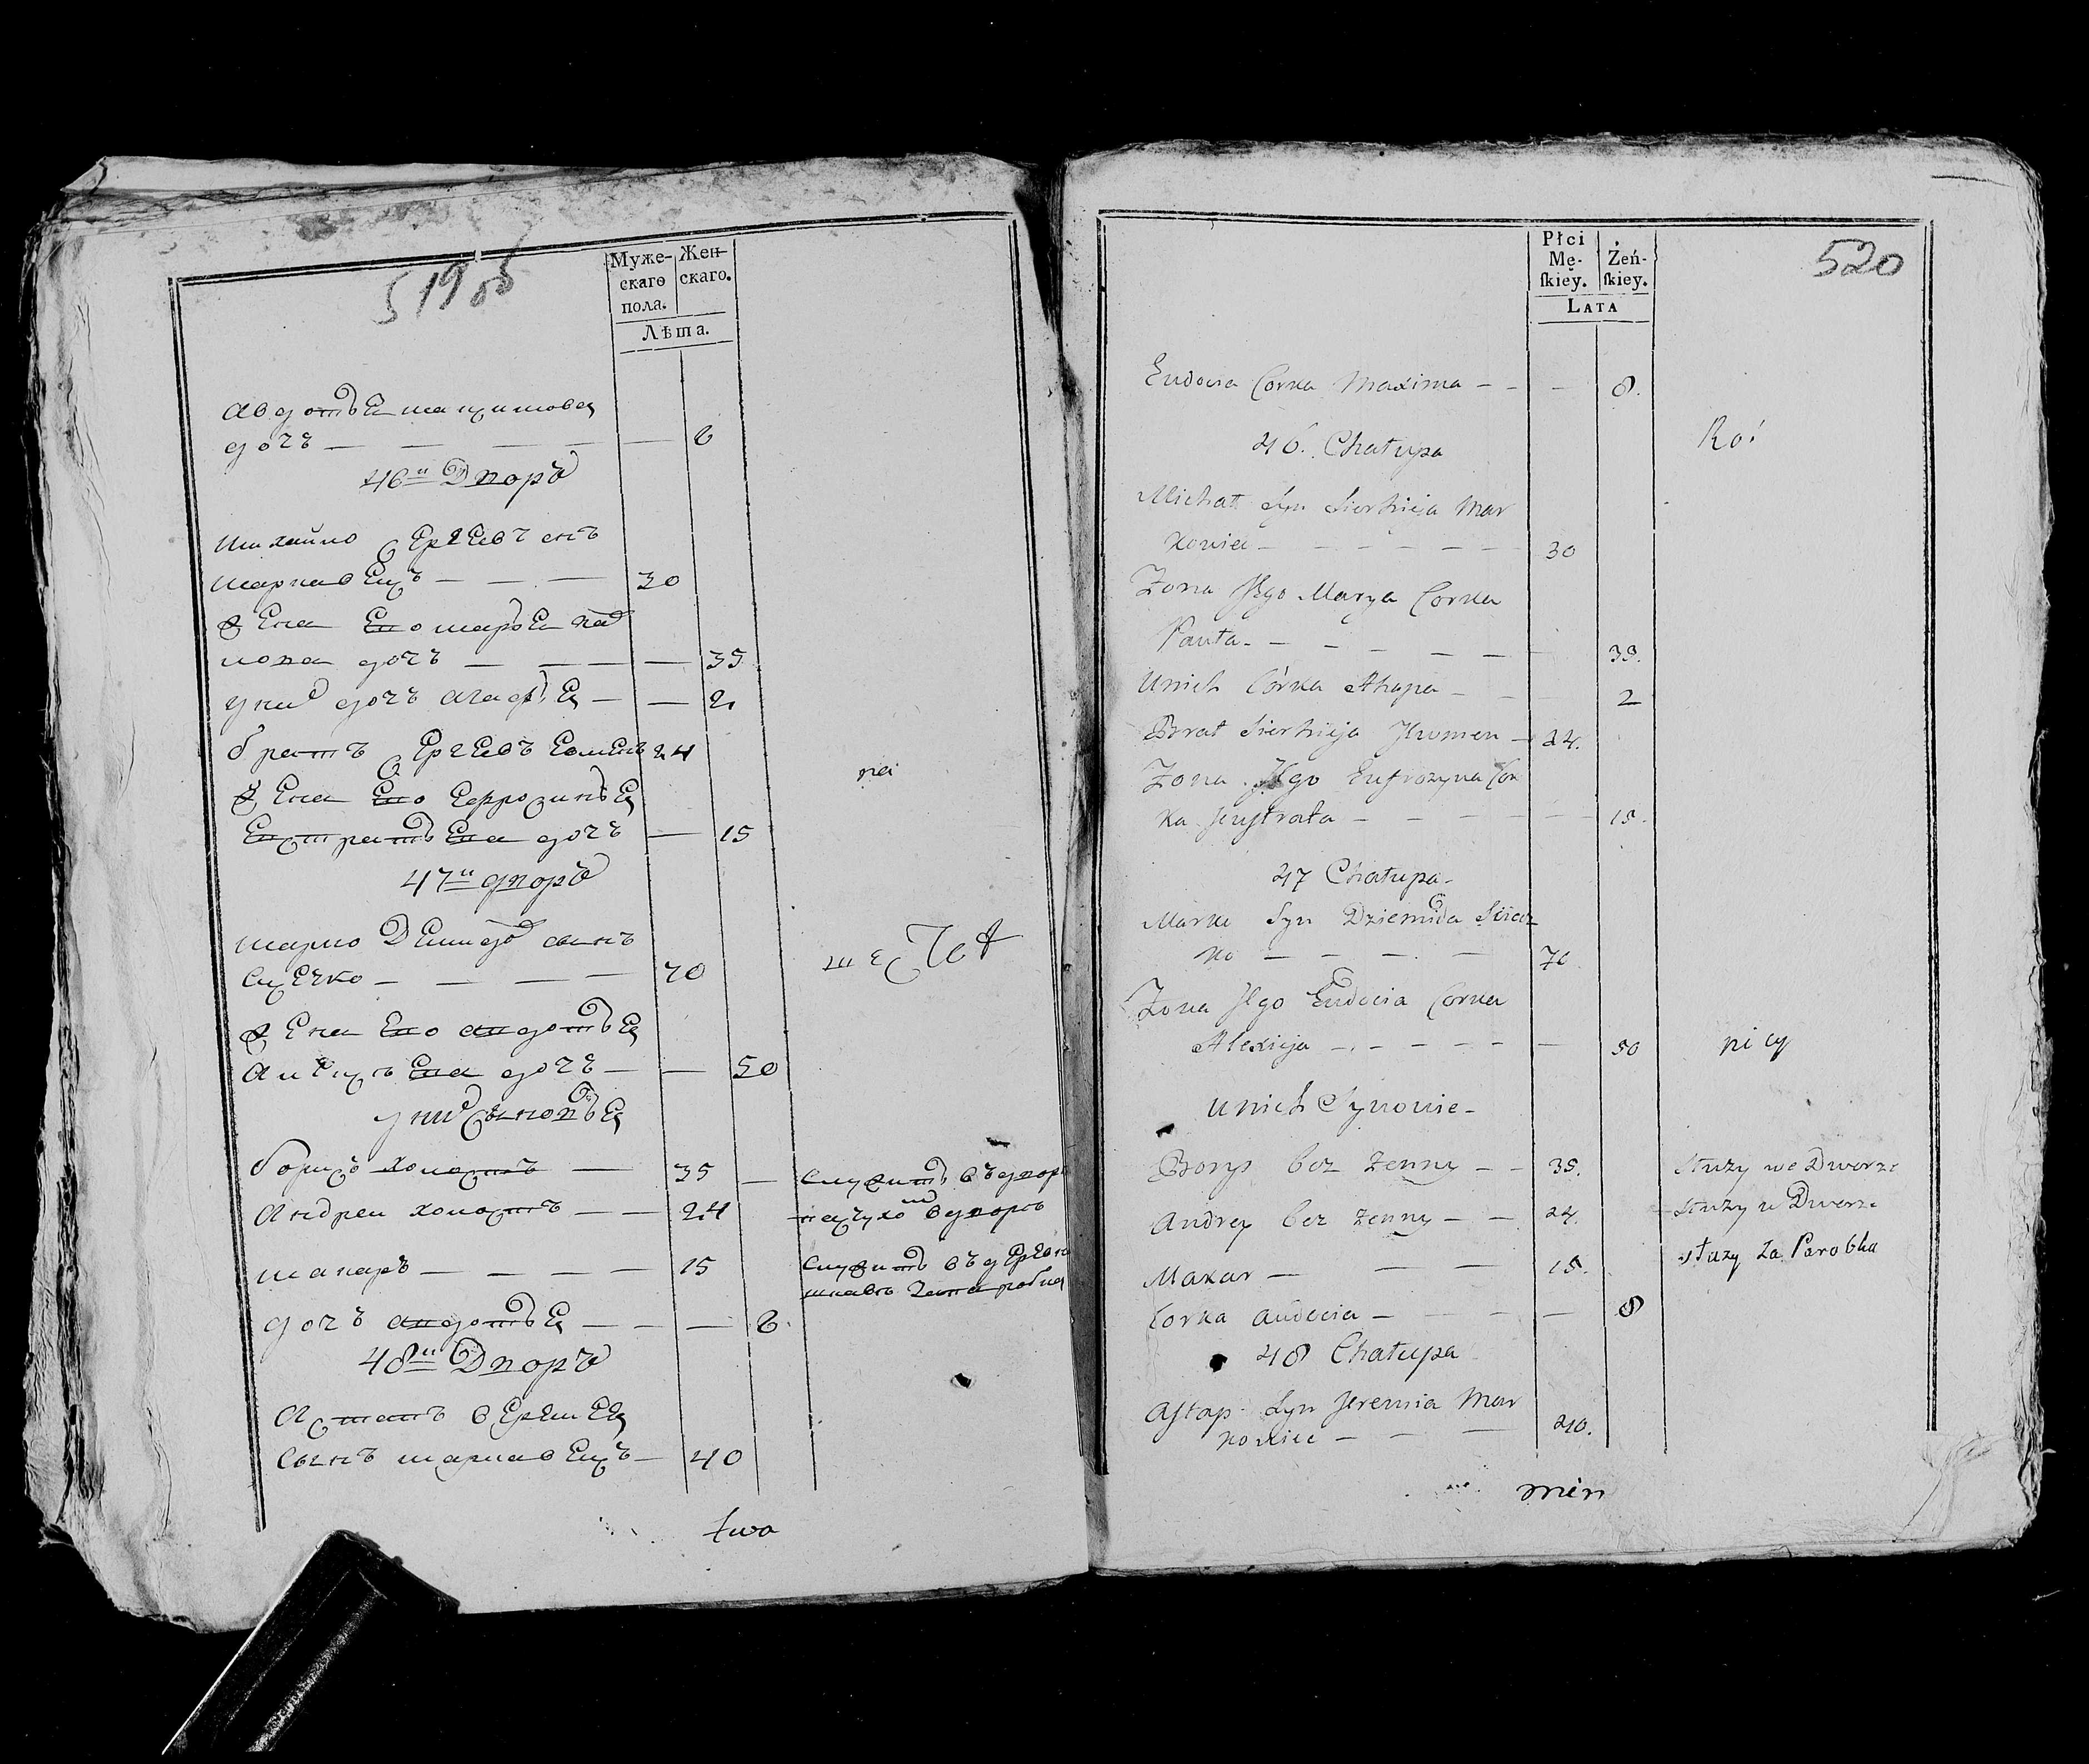 519об
Муже-
скаго
пола.
Жен-
скаго.
Лѣта.
Авдотья Максимова
дочь — — — — — 8
46й Дворъ
Михайло Сергеевъ снъ
Марковецъ — — — 30
Жена Его Марья Пав
лова дочь — — — — 35
у них дочь Агафья — — 2
братъ Сергеевъ 24
Жена Его Ефрозинья
Евстратьева дочь — 15
47й дворъ
Марко Демидов сынъ
Сечко — — — — 70
Жена Его Авдотья
дочь — — 50
у них Сыновья
Борисъ холостъ — 35 — служитъ въ дворе
Андрей холостъ — — 24 в дворе
Макаръ — — — — 15 служитъ въ
дочь Авдотья — — — 8.
48й Дворъ
Астапъ Еремеев
Сынъ Марковецъ — 40
two
520
Płci
Mę-
ſkiey.
Żeń-
ſkiey.
LATA
Eudocia Corka Maxima - - — 8.
46. Chałupa
Michał Syn Sierhieja Mar
kowiec — — — — — — 30
Zona Jego Marya Corka
Pawła - — — — — — 35.
Unich Córka Ahapa — — 2
Brat Sierhieja — 24.
Zona Jego Eufrozyna Cor
ka — — — — — 15.
47 Chałupa -
Marko Syn Dziemida Siecz
ko — — — — 70
Zona Jego Eudocia Corka
Alexieja — - — — — — 50
Unich Synowie -
Borys bez żenny — — 35. służy we Dworze
Andrey bez żenny — — 24. służy w Dworze
Makar — — — 15. służy za Parobka
Corka Audocia — — — — 8
48 Chałupa
Astap Syn Jeremia Mar
kowiec — — — 40.
min